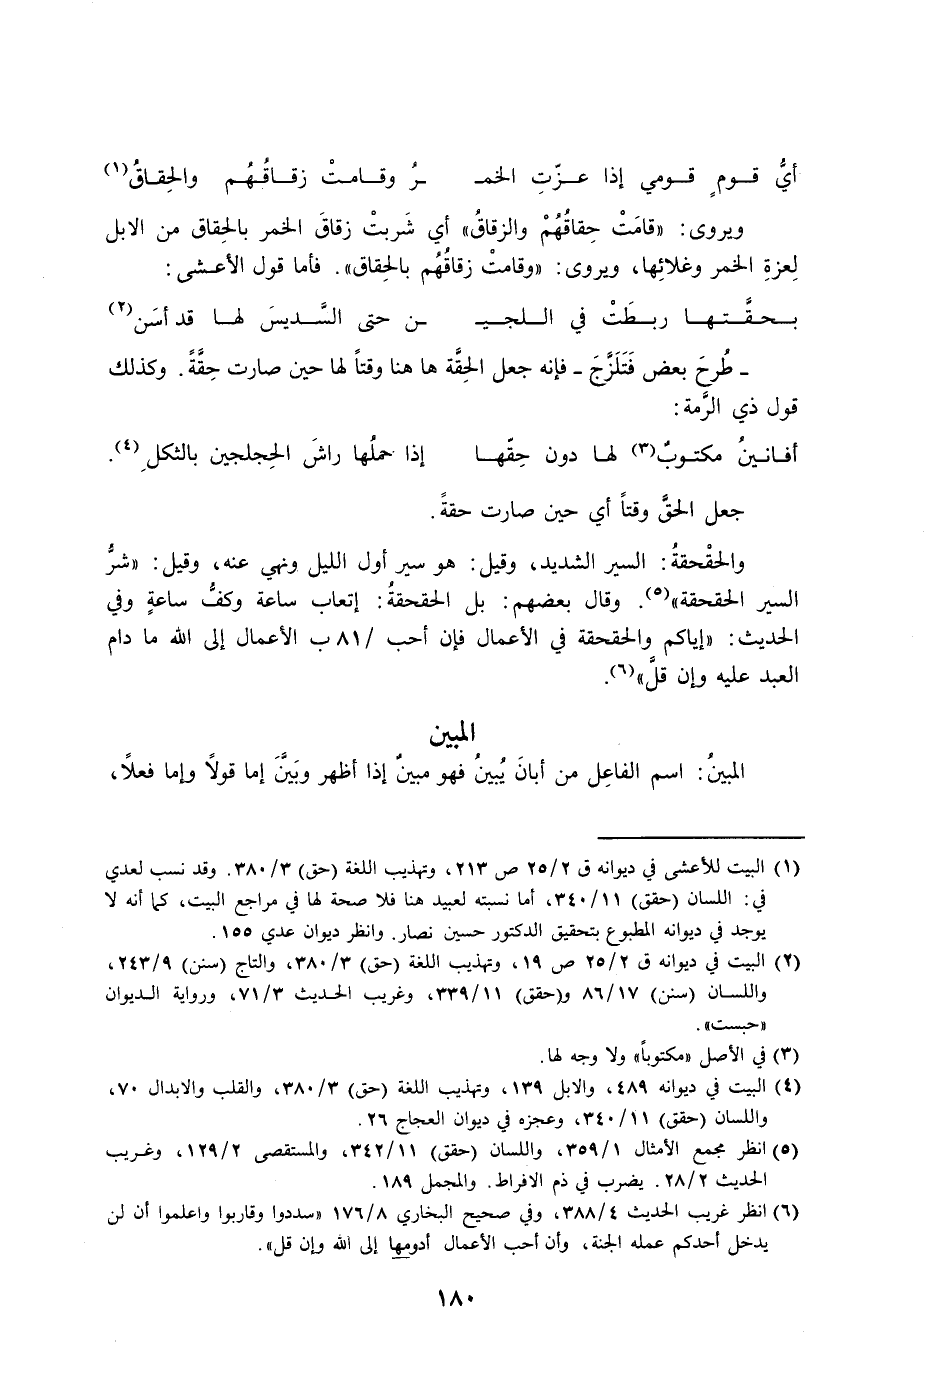 أيُّ قـومٍ قـومي إذا عـزّتِ الخمـ ـرُ وقـامـتْ زقـاقُـهُـم والحِقـاقُ(١)
ويروى: «قامَتْ حِقاقُهُمْ والزقاقُ» أي شَربتْ زقاقَ الخمر بالحِقاق من الابل
لِعزةِ الخمر وغلائِها، ويروى: «وقامتْ زقاقُهُم بالحِقاق». فأما قول الأعشى:
بـحقَّـتـهـا ربـطَتْ في الـلجيـ ـن حتى السَّـديسَ لهـا قد أسَن(٢)
ـ طُرحَ بعض فَتَلَزَّجَ ـ فإنه جعل الحِقَّة ها هنا وقتاً لها حين صارت حِقَّةً. وكذلك
قول ذي الرَّمة:
أفـانـينُ مكتـوبٌ(٣) لهـا دون حِقّهـا إذا حملُها راشَ الحِجلجين بالثكل(٤).
جعل الحقَّ وقتاً أي حين صارت حقةً.
والحقْحقةُ: السير الشديد، وقيل: هو سير أول الليل ونهي عنه، وقيل: «شرُّ
السير الحقحقة»(٥). وقال بعضهم: بل الحقحقةُ: إتعاب ساعة وكفُّ ساعةٍ وفي
الحديث: «إياكم والحقحقة في الأعمال فإن أحب /٨١ ب الأعمال إلى الله ما دام
العبد عليه وإن قلَّ»(٦).
المبين
المبينُ: اسم الفاعِل من أبانَ يُبينُ فهو مبينٌ إذا أظهر وبَيَّنَ إما قولاً وإما فعلاً،
(١) البيت للأعشى في ديوانه ق ٢٥/٢ ص ٢١٣، وتهذيب اللغة (حق) ٣٨٠/٣. وقد نسب لعدي
في: اللسان (حقق) ٣٤٠/١١، أما نسبته لعبيد هنا فلا صحة لها في مراجع البيت، كما أنه لا
يوجد في ديوانه المطبوع بتحقيق الدكتور حسين نصار. وانظر ديوان عدي ١٥٥.
(٢) البيت في ديوانه ق ٢٥/٢ ص ١٩، وتهذيب اللغة (حق) ٣٨٠/٣، والتاج (سنن) ٢٤٣/٩،
واللسان (سنن) ٨٦/١٧ و(حقق) ٣٣٩/١١، وغريب الحديث ٧١/٣، ورواية الديوان
«حبست».
(٣) في الأصل «مكتوباً» ولا وجه لها.
(٤) البيت في ديوانه ٤٨٩، والابل ١٣٩، وتهذيب اللغة (حق) ٣٨٠/٣، والقلب والابدال ٧٠،
واللسان (حقق) ٣٤٠/١١، وعجزه في ديوان العجاج ٢٦.
(٥) انظر مجمع الأمثال ٣٥٩/١، واللسان (حقق) ٣٤٢/١١، والمستقصى ١٢٩/٢، وغريب
الحديث ٢٨/٢. يضرب في ذم الافراط. والمجمل ١٨٩.
(٦) انظر غريب الحديث ٣٨٨/٤، وفي صحيح البخاري ١٧٦/٨ «سددوا وقاربوا واعلموا أن لن
يدخل أحدكم عمله الجنة، وأن أحب الأعمال أدومها إلى الله وإن قل».
١٨٠